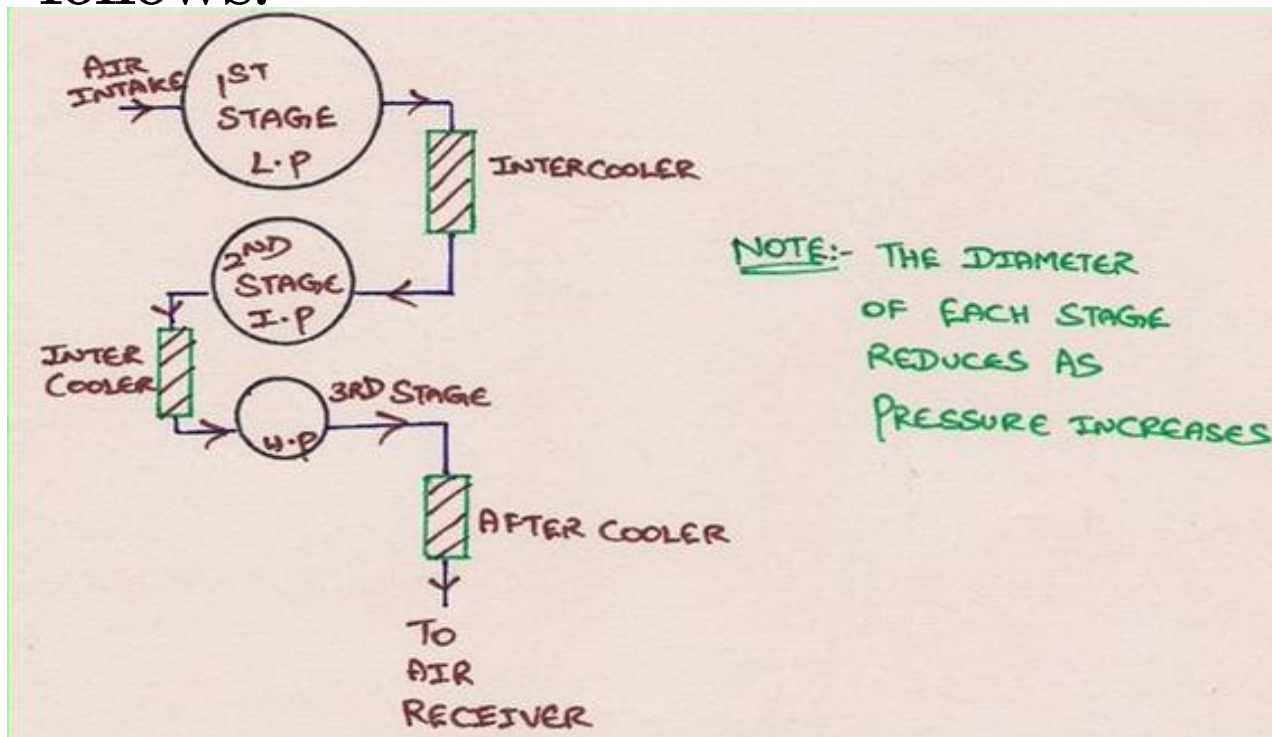 follows:
AIR
INTAKE
1ST
STAGE
L.P
INTERCOOLER
2ND
STAGE
I.P
INTER
COOLER
3RD STAGE
H.P
AFTER COOLER
TO
AIR
RECEIVER
NOTE:- THE DIAMETER
OF EACH STAGE
REDUCES AS
PRESSURE INCREASES